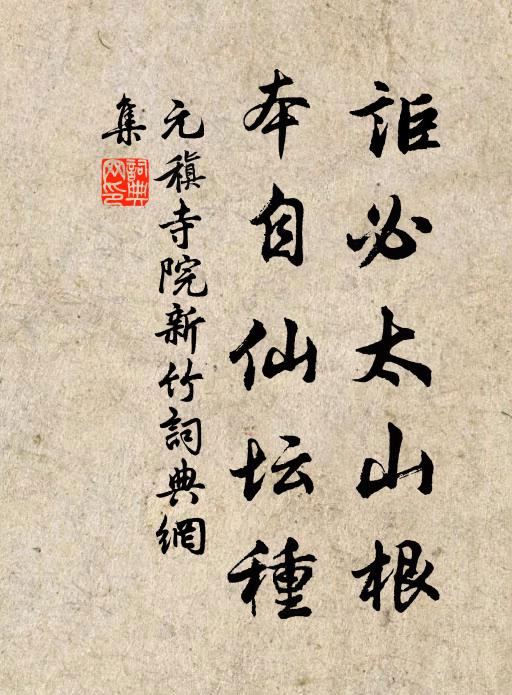 詎必太山根
本自仙坛種
元稹寺院新竹詞典網
集
詞典
网印